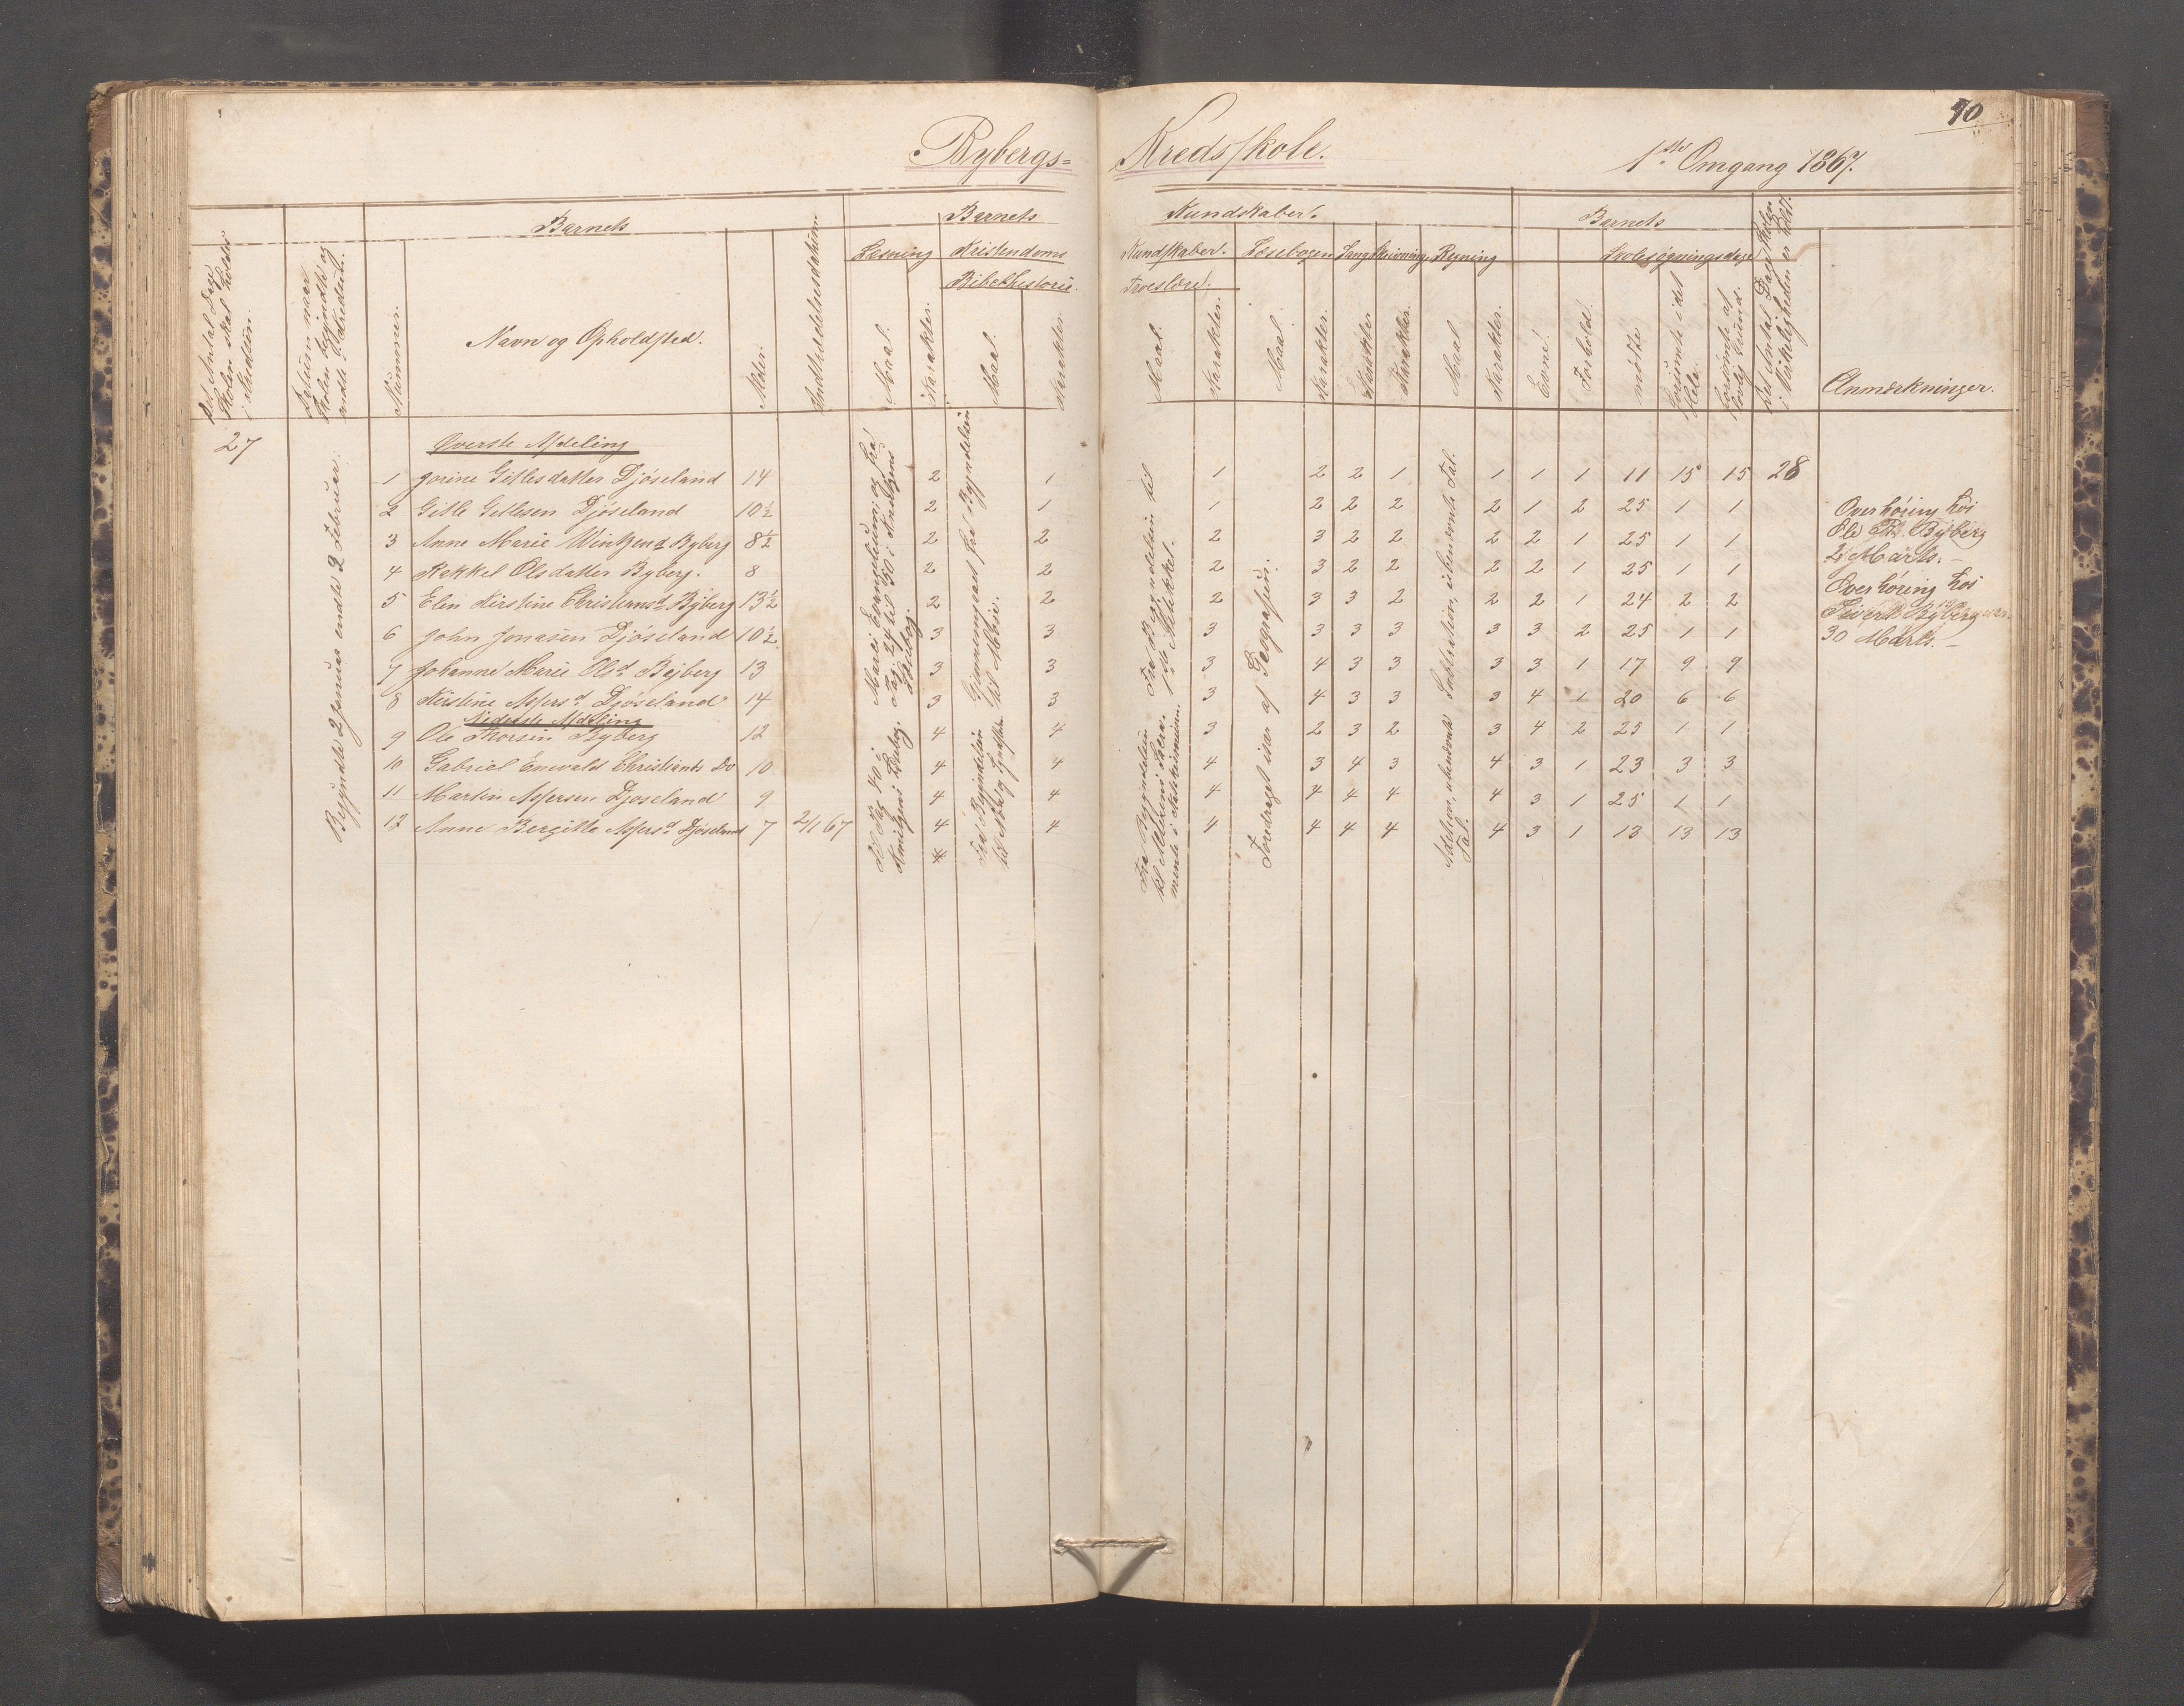 Bybergs= Kredsskole. 1ste Omgang 1867. 40
Barnets
Barnets Kundskaber.
Barnets
Læsning Kristendoms Kundskaber. Læsebogen Sang Skrivning Regning Skolesøgningsdage
Bibelhistorie. Troeslære.
Det Antal Dage Skolen skal holdes i Kredsen.
Datum naar Skolen begyndte og endte
Nummer.
Navn og Opholdssted.
Alder.
Indtrædelsesdatum.
Maal. Karakter. Maal. Karakter.
Maal. Karakter. Maal. Karakter. Karakter. Karakter. Maal. Karakter. Evne. Forhold. mødte Forsømte i det Hele. Forsømte af lovlig Grund. Det Antal Dage Skolen i Virkeligheden er holdt.
Anmærkninger.
27
Begyndte 2 Januar endte 2 Februar.
Øverste Afdeling
1 Jorine Gitlesdatter Djøseland 14 2 1 1 2 2 1 1 1 1 11 15 15 28
2 Gitle Gitlesen Djøseland 10½ 2 1 1 2 2 2 2 1 2 25 1 1
3 Anne Marie Byberg 8½ 2 2 2 3 2 2 2 2 1 25 1 1
4 Rakkel Olsdatter Byberg. 8 2 2 2 3 2 2 2 2 1 25 1 1
5 Elen Kirstine Christiansd Byberg 13½ 2 2 2 3 3 2 2 2 1 24 2 2
6 John Jonasen Djøseland 10½ 3 3 3 3 3 3 3 3 2 25 1 1
7 Johanne Marie Olsd Byberg 13 3 3 3 4 3 3 3 3 1 17 9 9
8 Kirstine Aspersd Djøseland 14 3 3 3 4 3 3 3 4 1 20 6 6
Nederste Afdeling
9 Ole Thorsen Byberg 12 4 4 3 2 3 2 3 4 2 25 1 1
10 Gabriel Enevald Christians Do 10 4 4 4 3 4 3 4 3 1 23 3 3
11 Martin Aspersen Djøseland 9 4 4 4 4 4 4 4 3 1 25 1 1
12 Anne Bergitte Aspersd Djøseland 7 2/1 67 4 4 4 4 4 4 4 3 1 13 13 13
Marci Evangelium og fra
Pag. 24 til 50 i
Læsebog.
Gjennemgaaet fra Begyndelsen
Fra Begyndelsen
Fra Begyndelsen til
1ste Artikkel.
Fra Begyndelsen
Foredraget især af Geografien.
Subtraktion, ubenævnte Tal.
Addition, ubenævnte
Tal.
Overhøring hos
Ole Byberg
2 Marts. –
Overhøring hos
Sivert Byberg
30 Marts. –